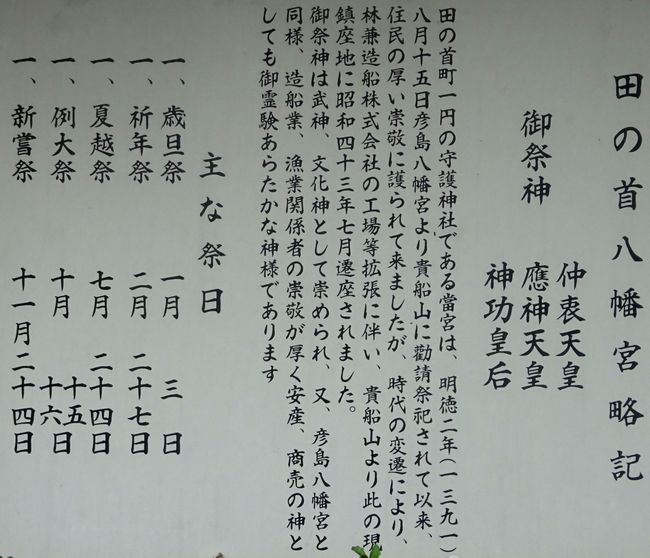 田の首八幡宮略記
御祭神
仲哀天皇
應神天皇
神功皇后
田の首町一円の守護神社である當宮は、明徳二年(一三九一)
八月十五日彦島八幡宮より貴船山に勸請祭祀されて以来、
住民の厚い崇敬に護られて来ましたが、時代の変遷により、
林兼造船株式会社の工場等拡張に伴い、貴船山より此の現
鎮座地に昭和四十三年七月遷座されました。
御祭神は武神、文化神として崇められ、又、彦島八幡宮と
同様、造船業、漁業関係者の崇敬が厚く安産、商売の神と
しても御霊験あらたかな神様であります
主な祭日
一、歳旦祭 一月 三日
一、祈年祭 二月 二十七日
一、夏越祭 七月 二十四日
一、例大祭 十月 十五 十六日
一、新嘗祭 十一月二十四日